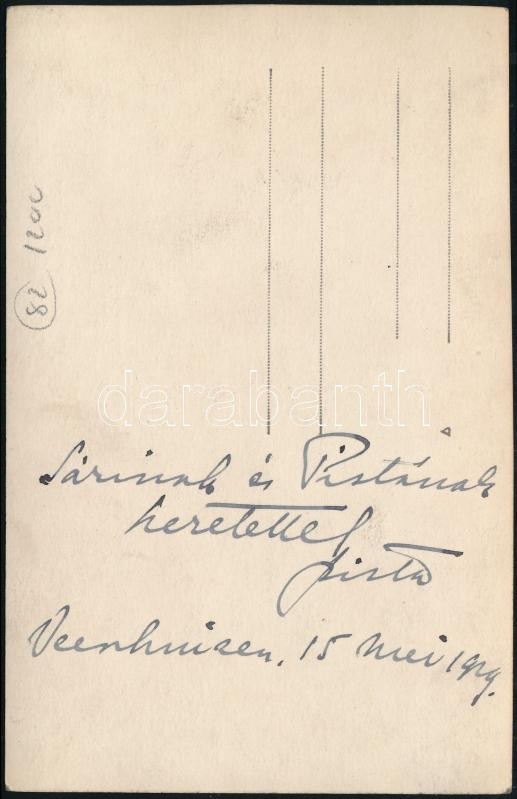 82 1200
darabanth
Sárinak és Pistának
szeretettel
Pista
Veenhuizen, 15 Mei 1919.